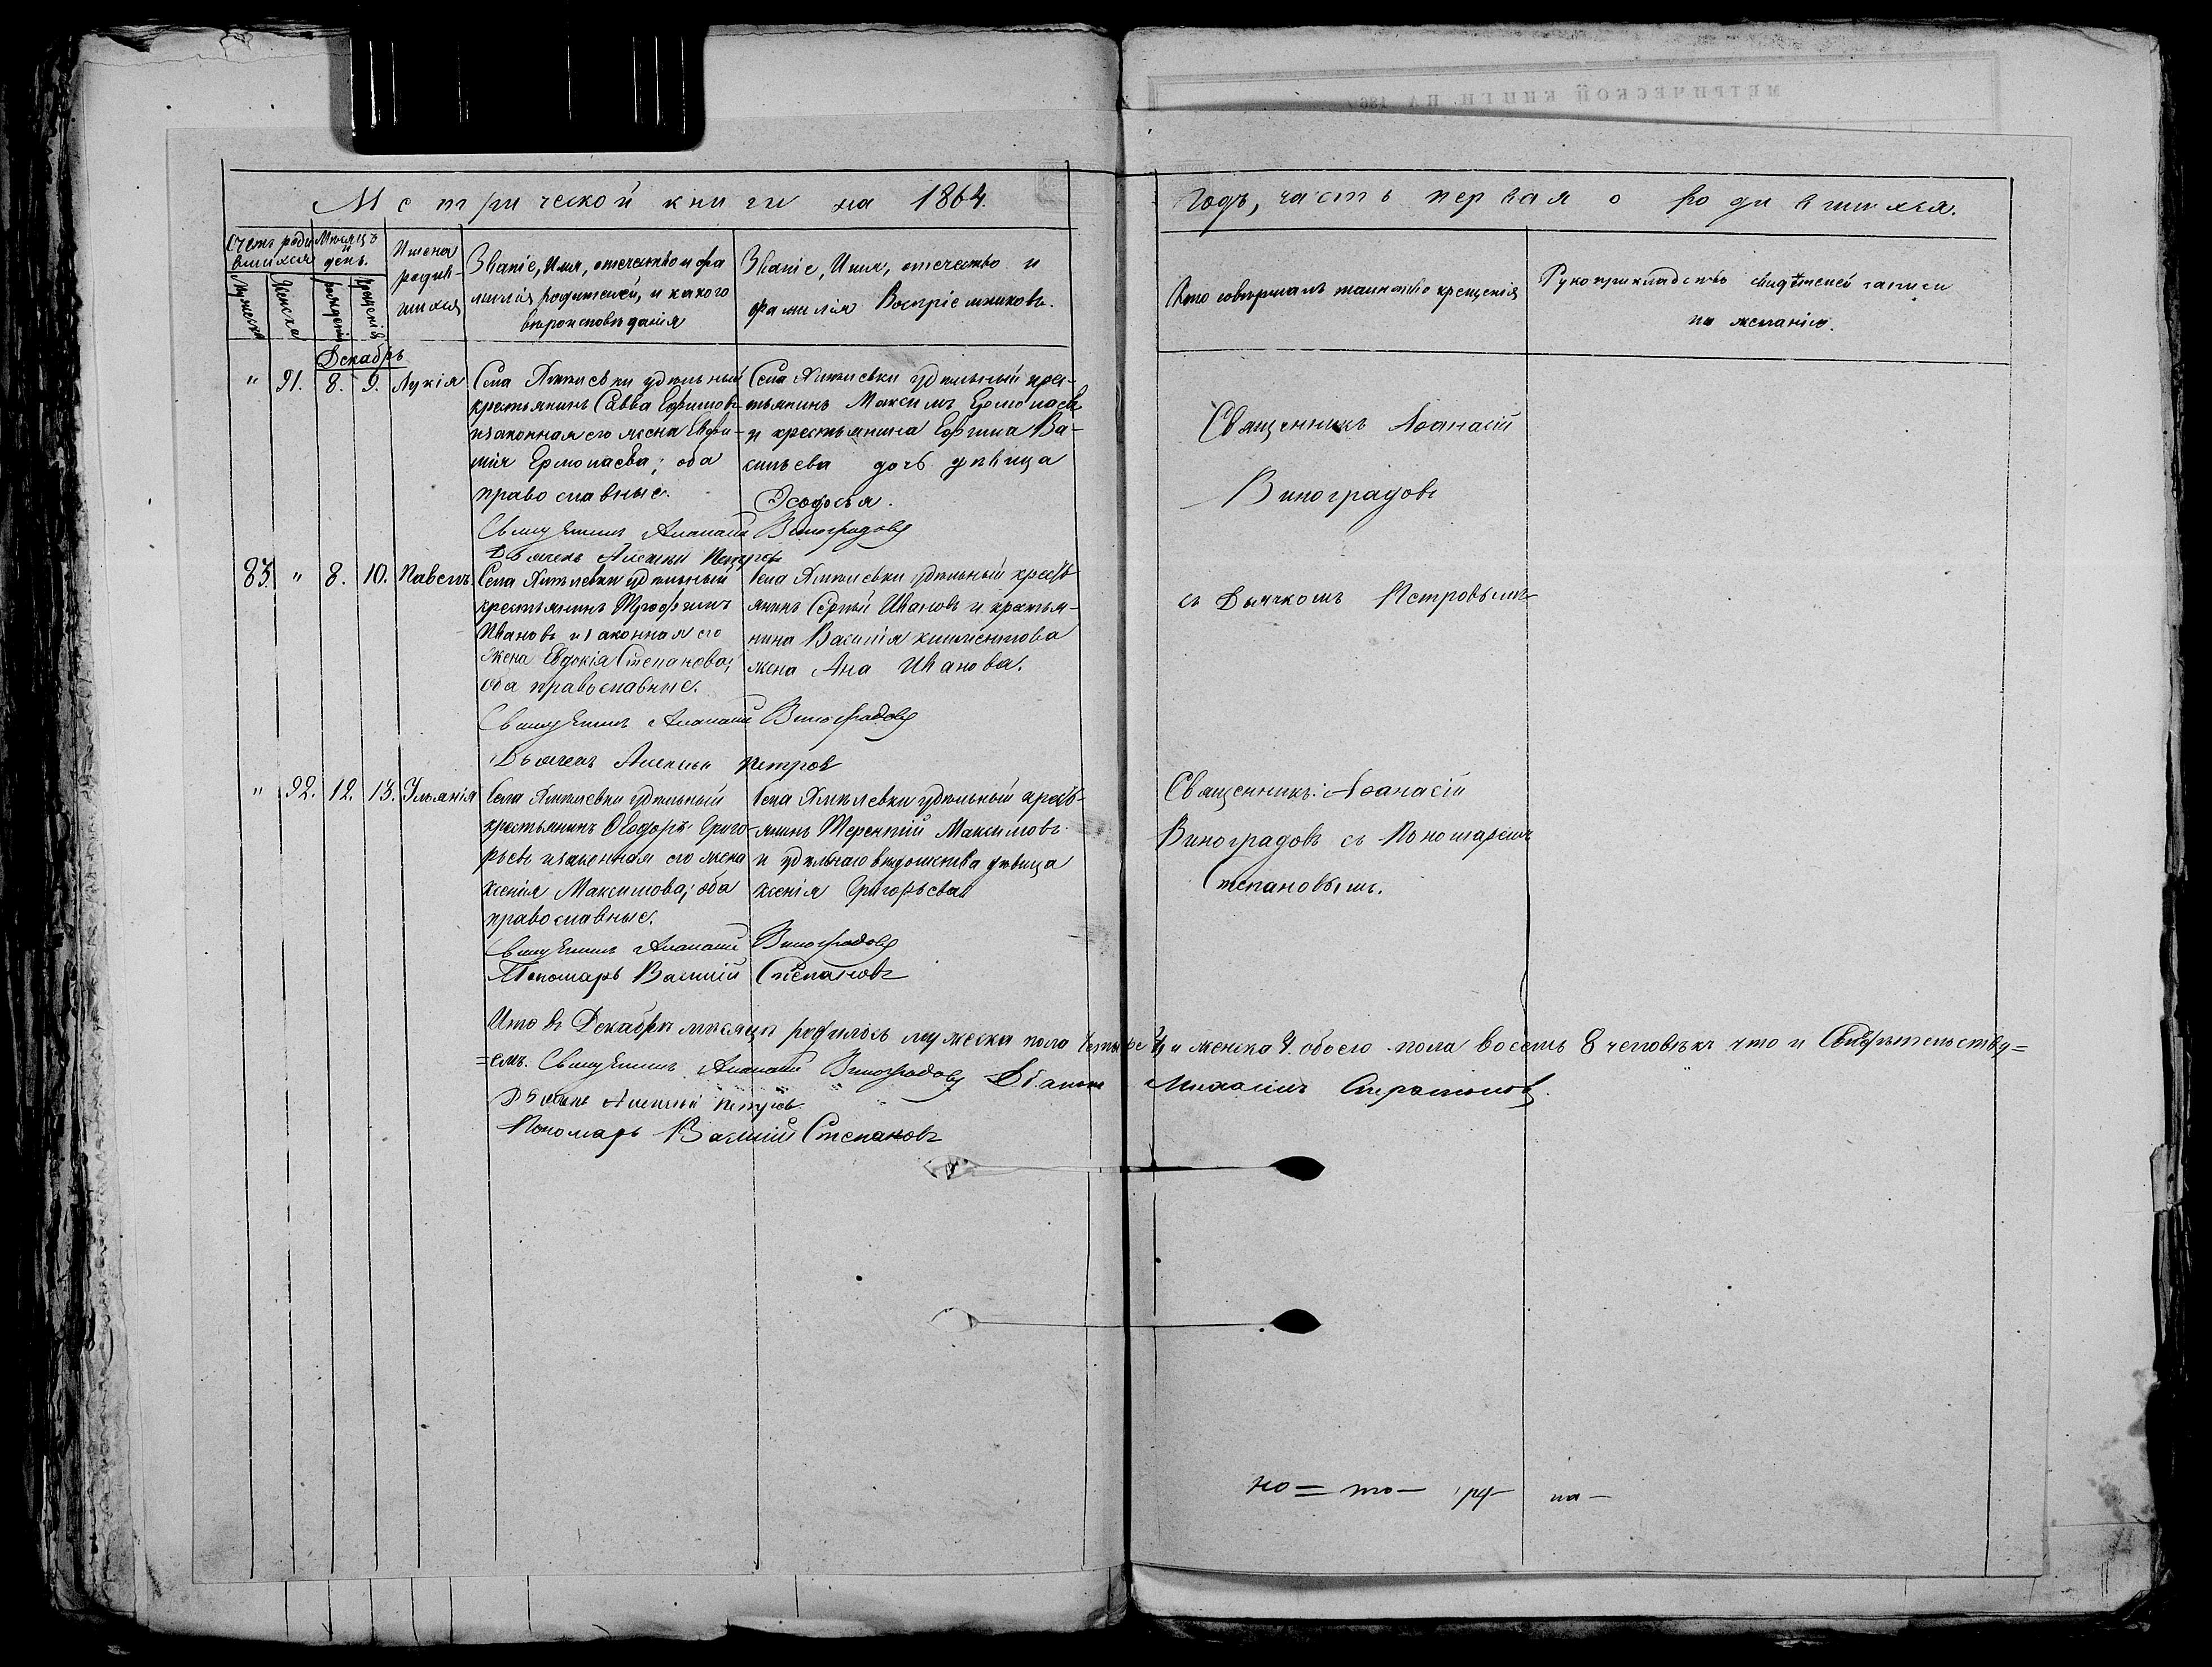 МЕТРИЧЕСКОЙ КНИГИ НА 186
Метрической книги на 1864.
Годъ, часть первая о родившихся.
Счетъ родившихся
Мѣсяцъ и день.
Имена родившихся
Званіе, Имя, отечество и фамилія родителей, и какого вѣроисповѣданія
Званіе, Имя, отечество и фамилія Воспріемниковъ.
Кто совершалъ таинство крещенія
Рукоприкладство свидѣтелей записи по желанію.
Мужеска
Женска
рожденія
крещенія
Декабрь
" 91. 8. 9. Лукія
Села удѣльный
крестьянинъ Савва Ефимовъ
и законная его жена Евфи-
мія Ермолаева; оба
православные.
Села удѣльный крес-
тьянинъ Максимъ Ермолаевъ
и крестьянина Ефима Ва-
сильева дочь дѣвица
Феодосья.
Священникъ Афанасій
Виноградовъ
Священникъ Афанасій Виноградовъ
Дьячекъ Алексѣй Петровъ
83. " 8. 10. Павелъ
Села удѣльный
крестьянинъ Трофимъ
Ивановъ и законная его
жена Евдокія Степанова;
оба православные.
Села удѣльный кресть-
янинъ Сергѣй Ивановъ и крестья-
нина Василія Климентова
жена Ана Иванова.
съ Дьячкомъ Петровымъ
Священникъ Афанасій Виноградовъ
Дьячекъ Алексѣй Петровъ
" 92. 12. 13. Ульянія
Села удѣльный
крестьянинъ Ѳеодоръ Григо-
рьевъ и законная его жена
Ксенія Максимова; оба
православные.
Села удѣльный кресть-
янинъ Терентій Максимовъ
и удѣльнаго вѣдомства дѣвица
Ксенія Григорьева
Священникъ: Афанасій
Виноградовъ съ Пономаремъ
Степановымъ.
Священникъ Афанасій Виноградовъ
Пономарь Василій Степановъ
Что въ Декабрѣ мѣсяцѣ родилось мужеска пола четыре 4, и женска 4. обоего пола восемь 8 человѣкъ что и Свидѣтельству=
=емъ. Священникъ Афанасій Виноградовъ Діаконъ
Дьячекъ Алексѣй Петровъ
Пономарь Василій Степановъ
но= то— на—